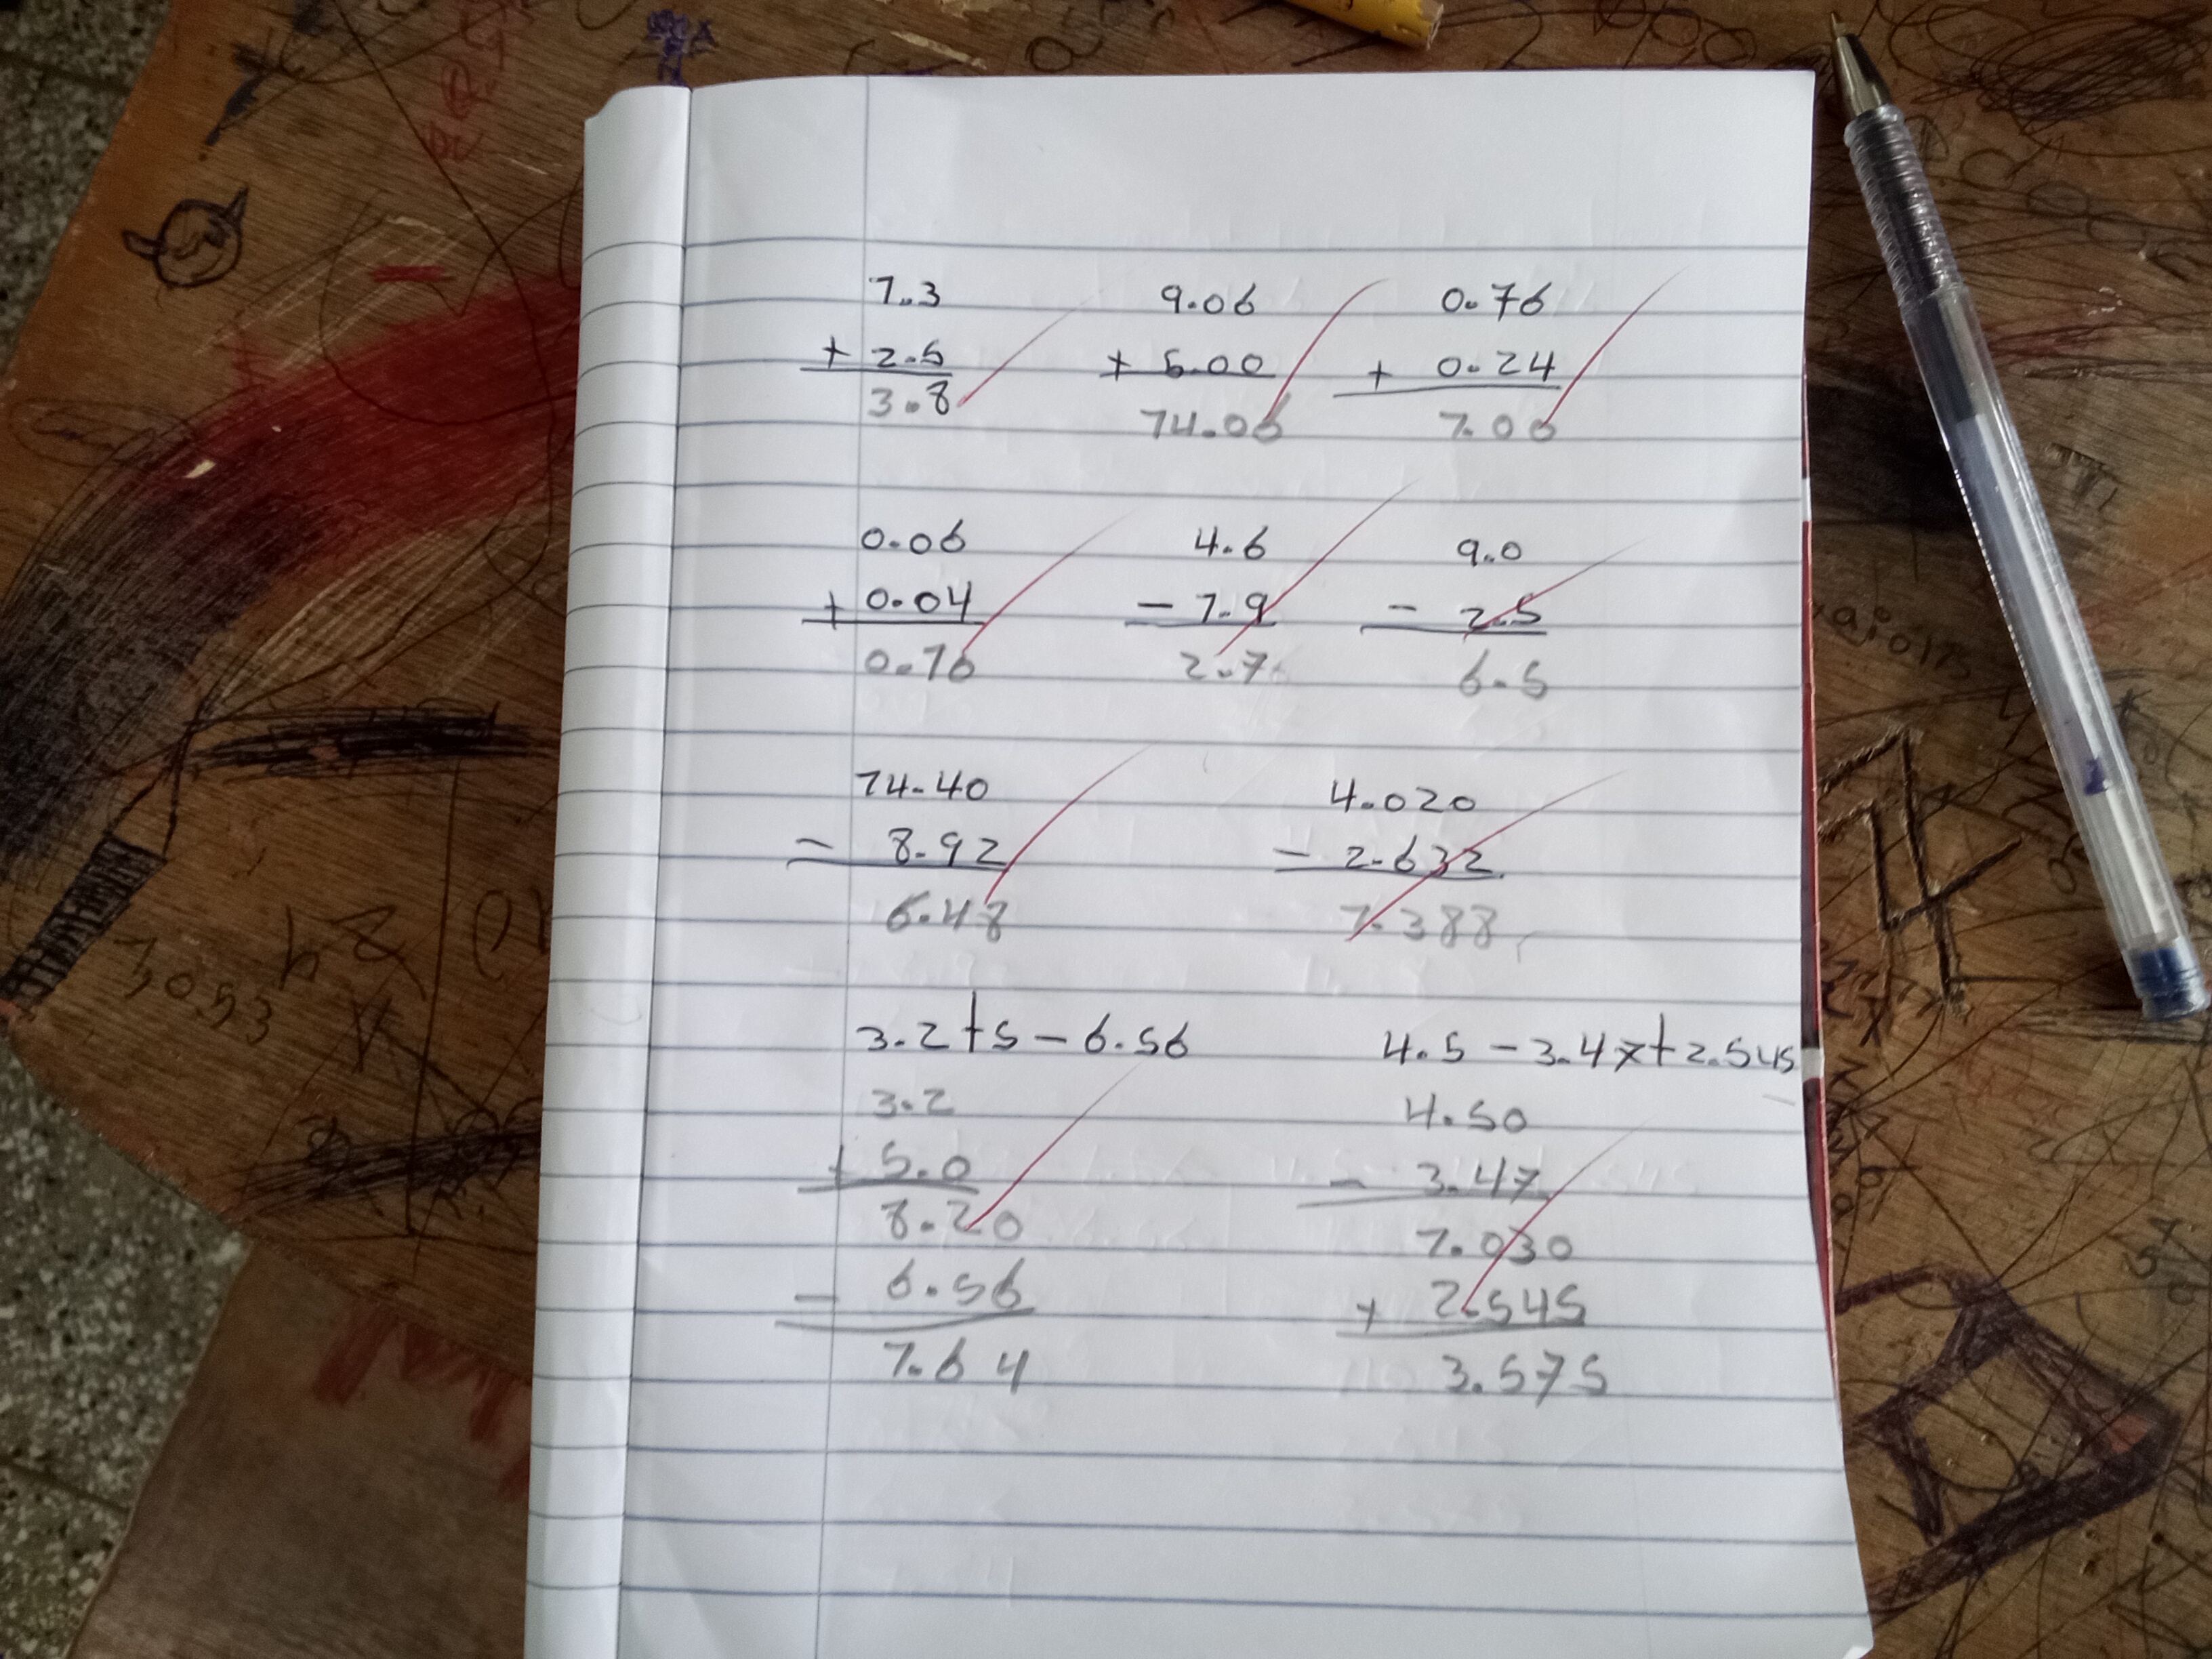 1.3 9.06 0.76
+ 2.5 + 5.00 + 0.24
3.8 14.06 1.00
0.06 4.6 9.0
+ 0.04 - 1.9 - 2.5
0.10 2.7 6.5
14.40 4.020
- 8.92 - 2.632
5.48 1.388
3.2 + 5 - 6.56 4.5 - 3.47 + 2.545
3.2 4.50
+ 5.0 - 3.47
8.20 1.030
- 6.56 + 2.545
1.64 3.575